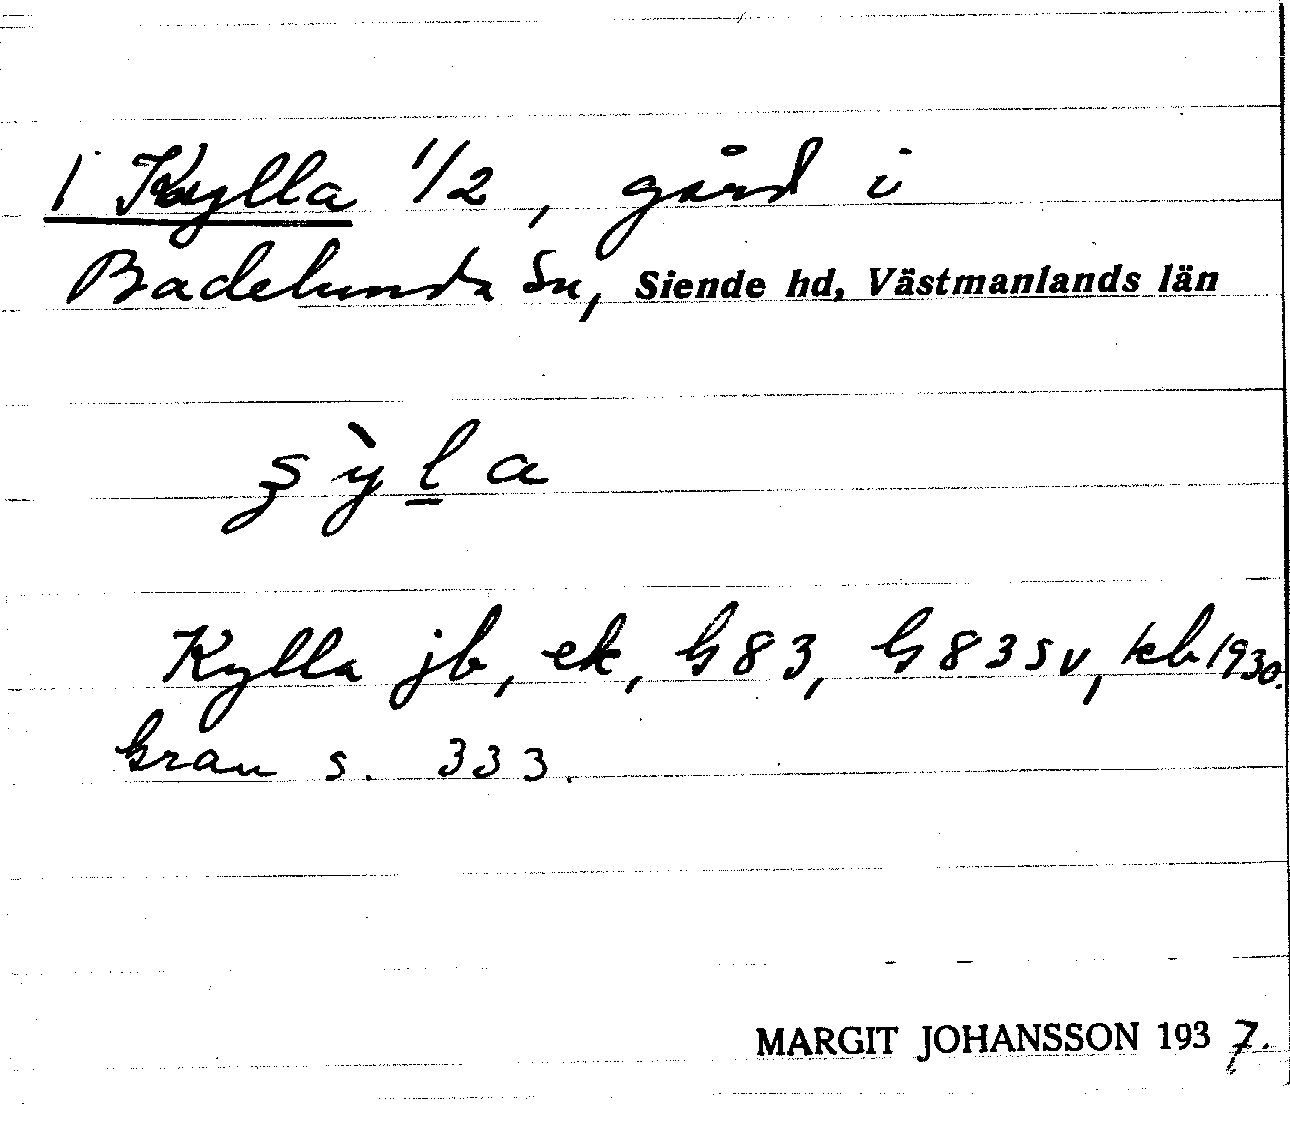 1 Kylla 1/2, gård i
Badelunda sn, Siende hd, Västmanlands län
ʂỳl̲a
Kylla jb, ek, G83, G83SV, kb 1930.
Gran s. 333.
MARGIT JOHANSSON 1937.